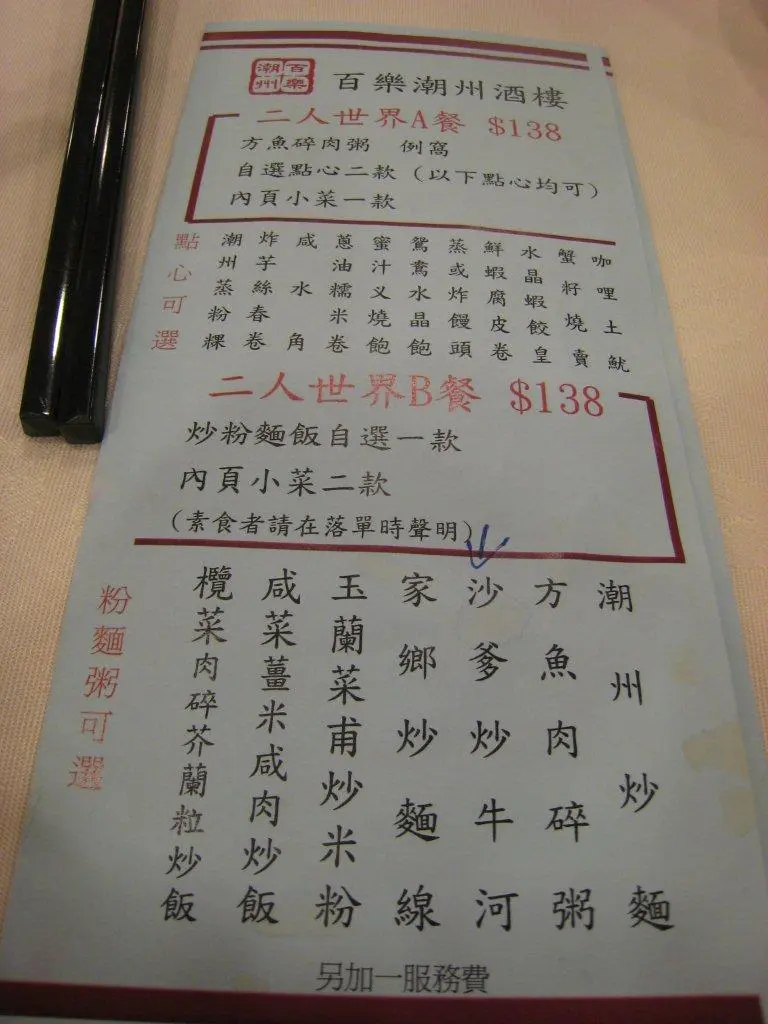 百樂潮州
百樂潮州酒樓
二人世界A餐 $138
方魚碎肉粥 例窩
自選點心二款（以下點心均可）
內頁小菜一款
點心可選
咖哩土魷
蟹籽燒賣
水晶蝦餃皇
鮮蝦腐皮卷
蒸或炸饅頭
鴛鴦水晶飽
蜜汁叉燒飽
蔥油糯米卷
咸水角
炸芋絲春卷
潮州蒸粉粿
二人世界B餐 $138
炒粉麵飯自選一款
內頁小菜二款
(素食者請在落單時聲明)
粉麵粥可選
潮州炒麵
方魚肉碎粥
沙爹炒牛河
家鄉炒麵線
玉蘭菜甫炒米粉
咸菜薑米咸肉炒飯
欖菜肉碎芥蘭粒炒飯
另加一服務費